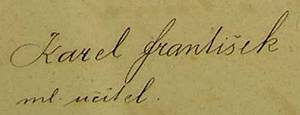 Karel František
ml. učitel.